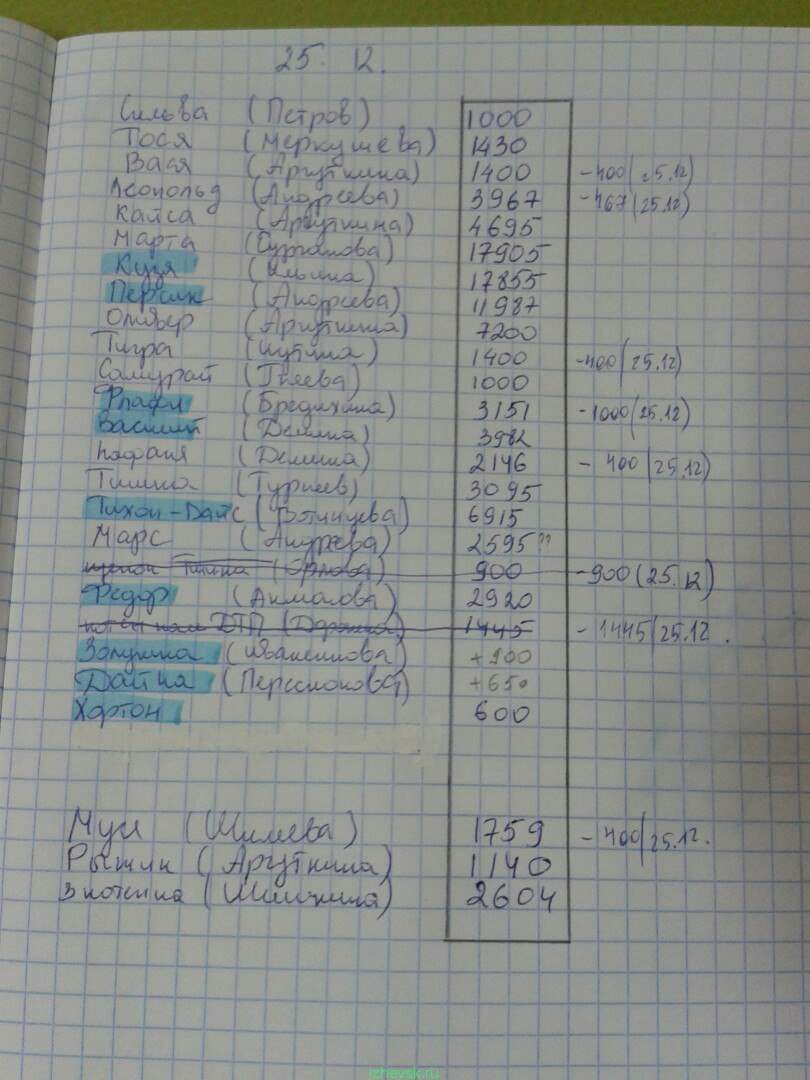 25. 12.
Сильва (Петров) 1000
Тося (Меркушева) 1430
Вася (Аргуткина) 1400 -400 (25.12)
Леопольд (Андреева) 3967 -467 (25.12)
Кайса (Аргуткина) 4695
Марта (Сурганова) 17905
Кузя (Ильина) 17855
Персик (Андреева) 11987
Оливер (Аргуткина) 7200
Тигра (Шутина) 1400 -400 (25.12)
Самурай (Гняева) 1000
Флафи (Бредихина) 3151 -1000 (25.12)
Василий (Демина) 3982
Нафаня (Демина) 2146 - 400 (25.12)
Тимка (Турнеев) 3095
Тихон-Дайс (Вотинцева) 6915
Марс (Андреева) 2595??
щенок Тишка (Орлова) 900 -900 (25.12)
Федор (Акмалова) 2920
ДТП 1445 - 1445 (25.12.
Золушка (Иваненкова) +900
Дайна +650
Хортон 600
Муся (Шиляева) 1759 - 400 (25.12.
Рыжик (Аргуткина) 1140
3 котенка (Шишкина) 2604
izhevsk.ru